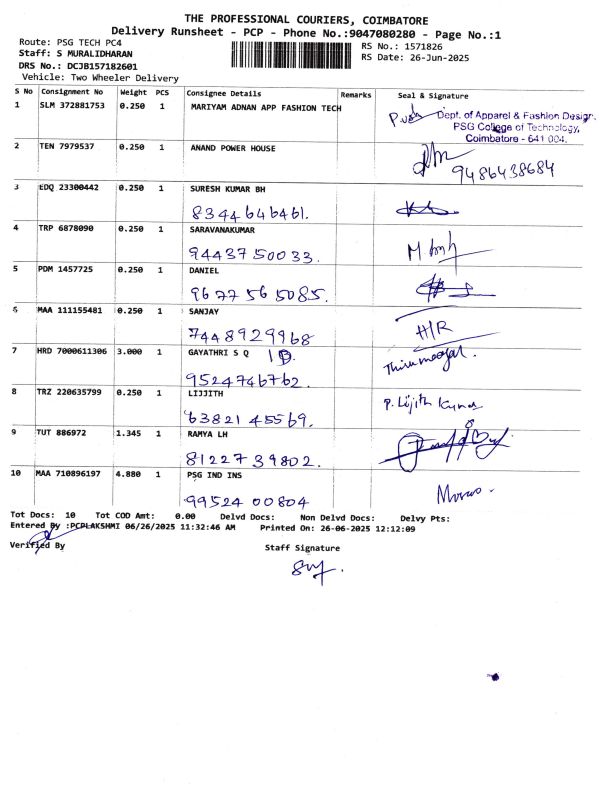 THE PROFESSIONAL COURIERS, COIMBATORE
Delivery Runsheet - PCP - Phone No.:9047080280 - Page No.:1
Route: PSG TECH PC4
Staff: S MURALIDHARAN
DRS No.: DCJB157182601
Vehicle: Two Wheeler Delivery
RS No.: 1571826
RS Date: 26-Jun-2025
S No Consignment No Weight PCS Consignee Details Remarks Seal & Signature
1 SLM 372881753 0.250 1 MARIYAM ADNAN APP FASHION TECH
Dept. of Apparel & Fashion Design.
PSG College of Technology,
Coimbatore - 641 004.
2 TEN 7979537 0.250 1 ANAND POWER HOUSE
9486438684
3 EDQ 23300442 0.250 1 SURESH KUMAR BH
8344646461.
4 TRP 6878090 0.250 1 SARAVANAKUMAR
9443750033.
5 PDM 1457725 0.250 1 DANIEL
9677565085.
6 MAA 111155481 0.250 1 SANJAY
7448929968 H/R
7 HRD 7000611306 3.000 1 GAYATHRI S Q
9524746762.
8 TRZ 220635799 0.250 1 LIJJITH P. Lijith Kumar
6382145569.
9 TUT 886972 1.345 1 RAMYA LH
8122739802.
10 MAA 710896197 4.880 1 PSG IND INS
9952400804
Tot Docs: 10 Tot COD Amt: 0.00 Delvd Docs: Non Delvd Docs: Delvy Pts:
Entered By :PCPLAKSHMI 06/26/2025 11:32:46 AM Printed On: 26-06-2025 12:12:09
Verified By Staff Signature